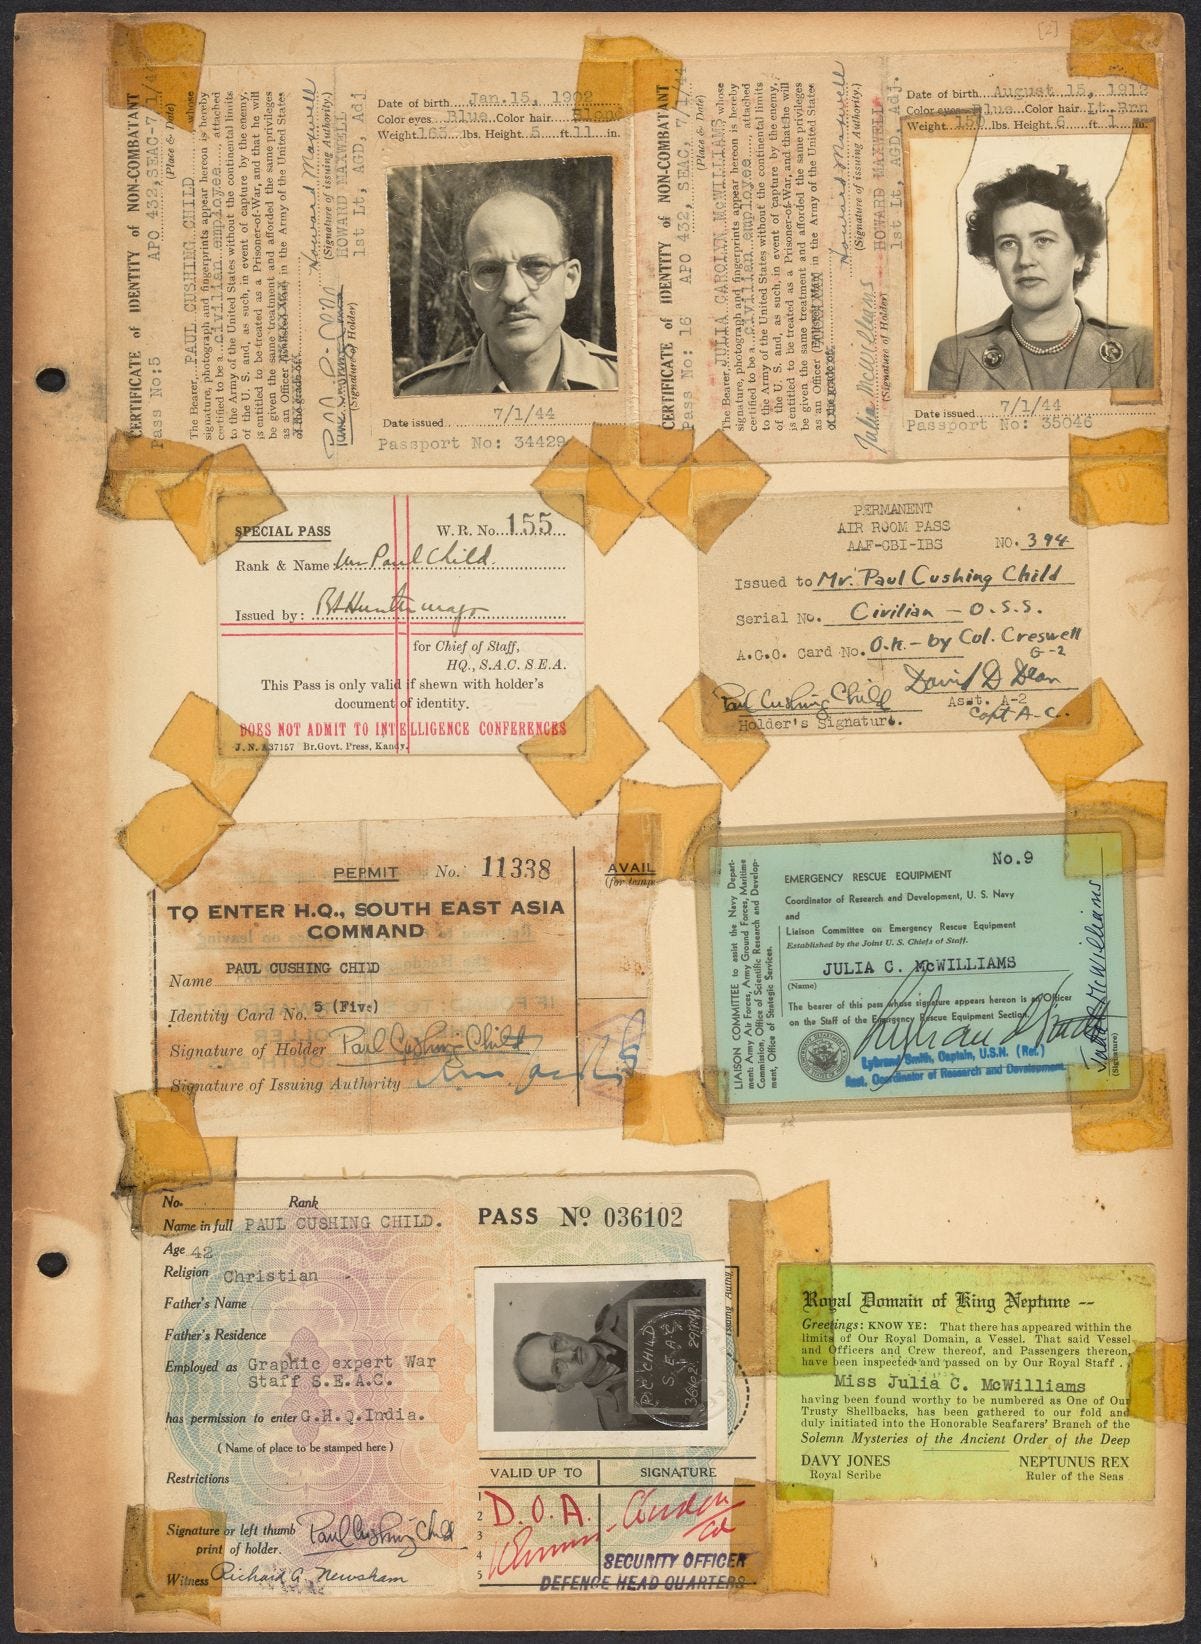 [2]
CERTIFICATE of IDENTITY of NON-COMBATANT
Pass No:5 APO 432,SEAC-7/1/44
(Place & Date)
The Bearer, PAUL CUSHING CHILD whose
signature, photograph and fingerprints appear hereon is hereby
certified to be a civilian employee attached
to the Army of the United States without the continental limits
of the U. S. and, as such, in event of capture by the enemy,
is entitled to be treated as a Prisoner-of-War, and that he will
be given the same treatment and afforded the same privileges
as an Officer in the Army of the United States
of the grade of
Howard Maxwell
(Signature of issuing Authority.)
HOWARD MAXWELL
1st Lt, AGD, Adj
(Signature of Holder)
Date of birth Jan.15, 1902
Color eyes Blue Color hair Blond
Weight 165 lbs. Height 5 ft. 11 in.
Date issued 7/1/44
Passport No: 34429
CERTIFICATE of IDENTITY of NON-COMBATANT
Pass No: 16 APO 432, SEAC, 7/1/44
(Place & Date)
The Bearer, JULIA CAROLYN McWILLIAMS whose
signature, photograph and fingerprints appear hereon is hereby
certified to be a civilian employee attached
to the Army of the United States without the continental limits
of the U. S. and, as such, in event of capture by the enemy,
is entitled to be treated as a Prisoner-of-War, and that he will
be given the same treatment and afforded the same privileges
as an Officer in the Army of the United States
of the grade of
Howard Maxwell
(Signature of issuing Authority.)
HOWARD MAXWELL
1st Lt, AGD, Adj.
Julia McWilliams
(Signature of Holder)
Date of birth August 15, 1912
Color eyes Blue Color hair Lt.Brn
Weight 150 lbs. Height 6 ft. 1 in.
Date issued 7/1/44
Passport No: 35046
SPECIAL PASS W. R. No. 155
Rank & Name Mr Paul Child.
Issued by:
for Chief of Staff,
HQ., S.A.C. S.E.A.
This Pass is only valid if shewn with holder's
document of identity.
DOES NOT ADMIT TO INTELLIGENCE CONFERENCES
J. N. A37157 Br.Govt. Press, Kandy.
PERMANENT
AIR ROOM PASS
AAF-CBI-IBS NO. 394
Issued to Mr. Paul Cushing Child
Serial No. Civilian - O.S.S.
A.G.O. Card No. O.K. - by Col. Creswell
G-2
David D Dean
Paul Cushing Child Asst. A-2
Holder's Signature. Capt A.C.
PERMIT No. 11338
TO ENTER H.Q., SOUTH EAST ASIA
COMMAND
Name PAUL CUSHING CHILD
Identity Card No. 5 (Five)
Signature of Holder Paul Cushing Child
Signature of Issuing Authority
AVAIL
(for temp
No.9
EMERGENCY RESCUE EQUIPMENT
Coordinator of Research and Development, U. S. Navy
and
Liaison Committee on Emergency Rescue Equipment
Established by the Joint U. S. Chiefs of Staff.
JULIA C. McWILLIAMS
(Name)
The bearer of this pass whose signature appears hereon is an Officer
on the Staff of the Emergency Rescue Equipment Section.
Lybrand Smith, Captain, U.S.N. (Ret.)
Asst. Coordinator of Research and Development.
LIAISON COMMITTEE to assist the Navy Depart-
ment: Army Air Forces, Army Ground Forces, Maritime
Commission, Office of Scientific Research and Develop-
ment, Office of Strategic Services.
Julia McWilliams
(Signature)
No. Rank
Name in full PAUL CUSHING CHILD.
Age 42
Religion Christian
Father's Name
Father's Residence
Employed as Graphic expert War
Staff S.E.A.C.
has permission to enter G.H.Q.India.
(Name of place to be stamped here)
Restrictions
Signature or left thumb Paul Cushing Child
print of holder.
Witness Richard A. Newsham
PASS No 036102
Issuing Authy
P.C. CHILD
S.E.A.C.
VALID UP TO SIGNATURE
1
2
3
4
5
D.O.A.
SECURITY OFFICER
DEFENCE HEAD QUARTERS
Royal Domain of King Neptune --
Greetings: KNOW YE: That there has appeared within the
limits of Our Royal Domain, a Vessel. That said Vessel
and Officers and Crew thereof, and Passengers thereon,
have been inspected and passed on by Our Royal Staff.
Miss Julia C. McWilliams
having been found worthy to be numbered as One of Our
Trusty Shellbacks, has been gathered to our fold and
duly initiated into the Honorable Seafarers' Branch of the
Solemn Mysteries of the Ancient Order of the Deep
DAVY JONES NEPTUNUS REX
Royal Scribe Ruler of the Seas